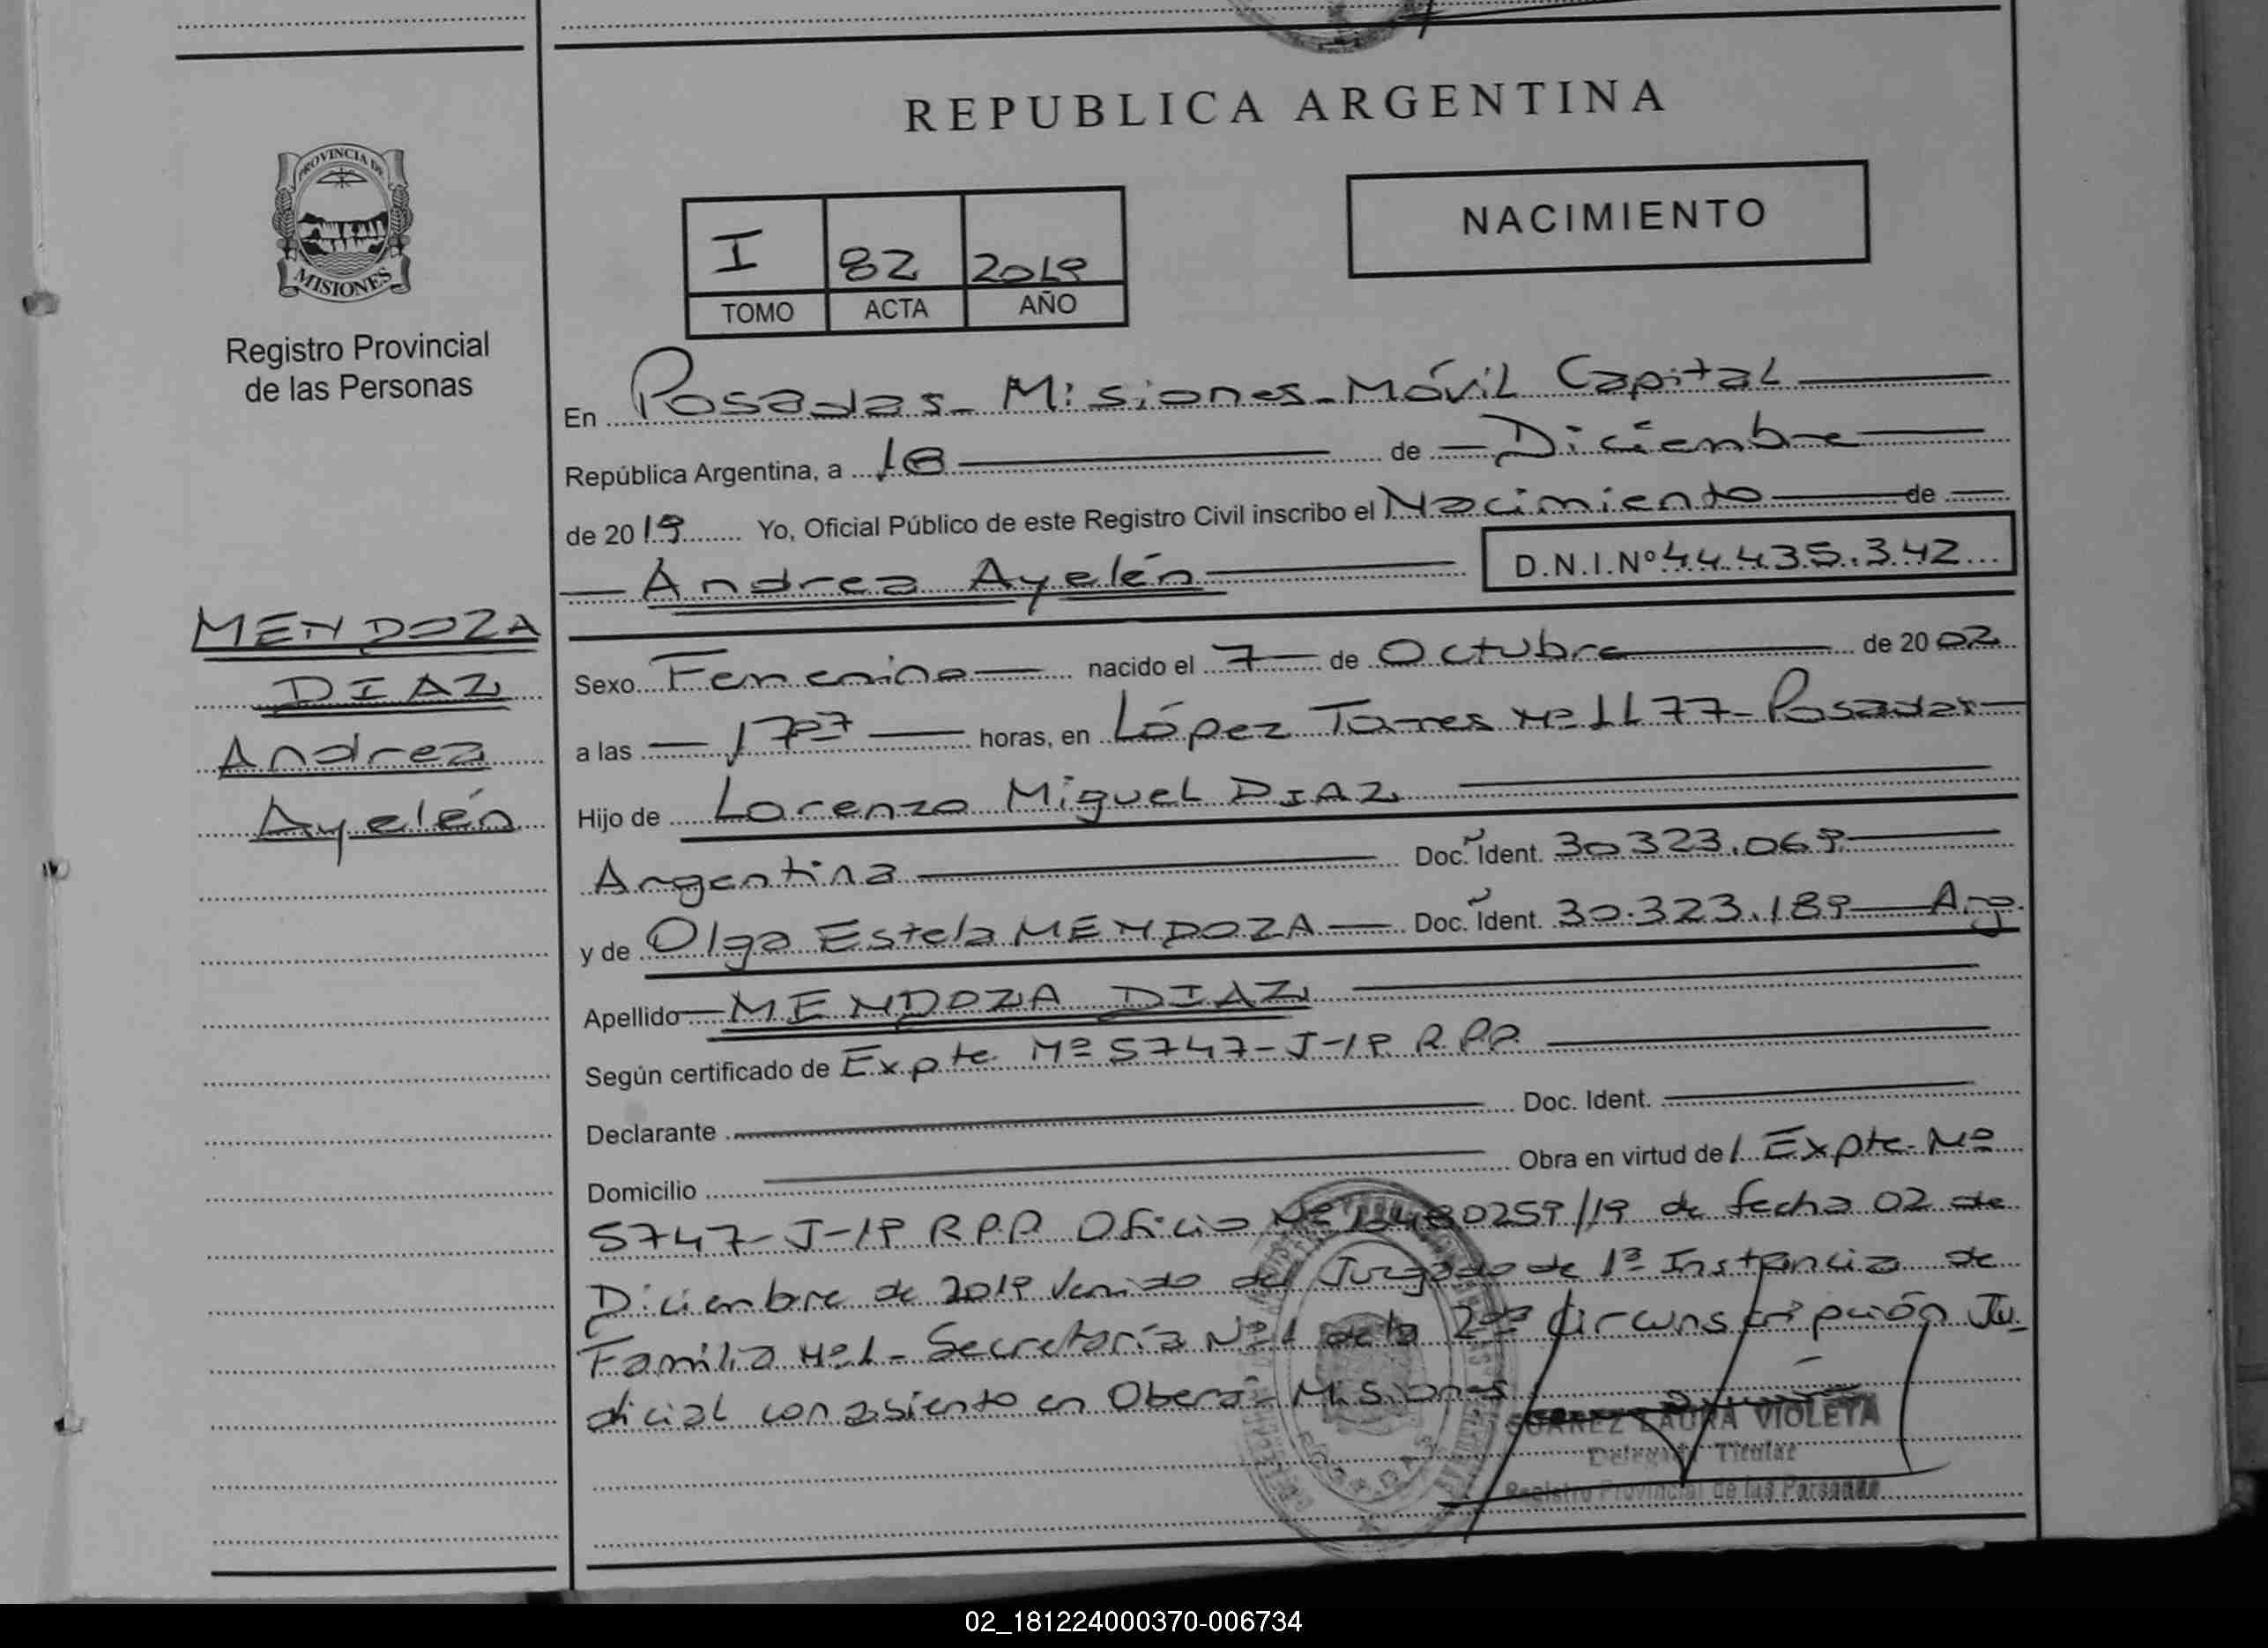 REPUBLICA ARGENTINA
PROVINCIA DE
MISIONES
Registro Provincial
de las Personas
I 82 2019
TOMO ACTA AÑO
NACIMIENTO
En Posadas - Misiones - Móvil Capital
República Argentina, a 18 de Diciembre
de 2019 Yo, Oficial Público de este Registro Civil inscribo el Nacimiento de
Andrea Ayelén D.N.I.Nº 44.435.342
MENDOZA
DIAZ
Andrea
Ayelén
Sexo Femenino nacido el 7 de Octubre de 2002
a las 17:07 horas, en López Torres Nº 1177 - Posadas
Hijo de Lorenzo Miguel DIAZ
Argentina Doc. Ident. 30 323.069
y de Olga Estela MENDOZA Doc. Ident. 30.323.189 Arg.
Apellido MENDOZA DIAZ
Según certificado de Expte. Nº 5747-J-19 R.P.P.
Declarante Doc. Ident.
Domicilio Obra en virtud de / Expte. Nº
5747-J-19 R.P.P. Oficio Nº 10480259/19 de fecha 02 de
Diciembre de 2019 venido del Juzgado de 1ª Instancia de
Familia Nº 1 - Secretaría Nº 1 de la 2da Circunscripción Ju-
dicial con asiento en Oberá - Misiones
SUAREZ LAURA VIOLETA
Delegada Titular
Registro Provincial de las Personas
POSADAS
02_181224000370-006734